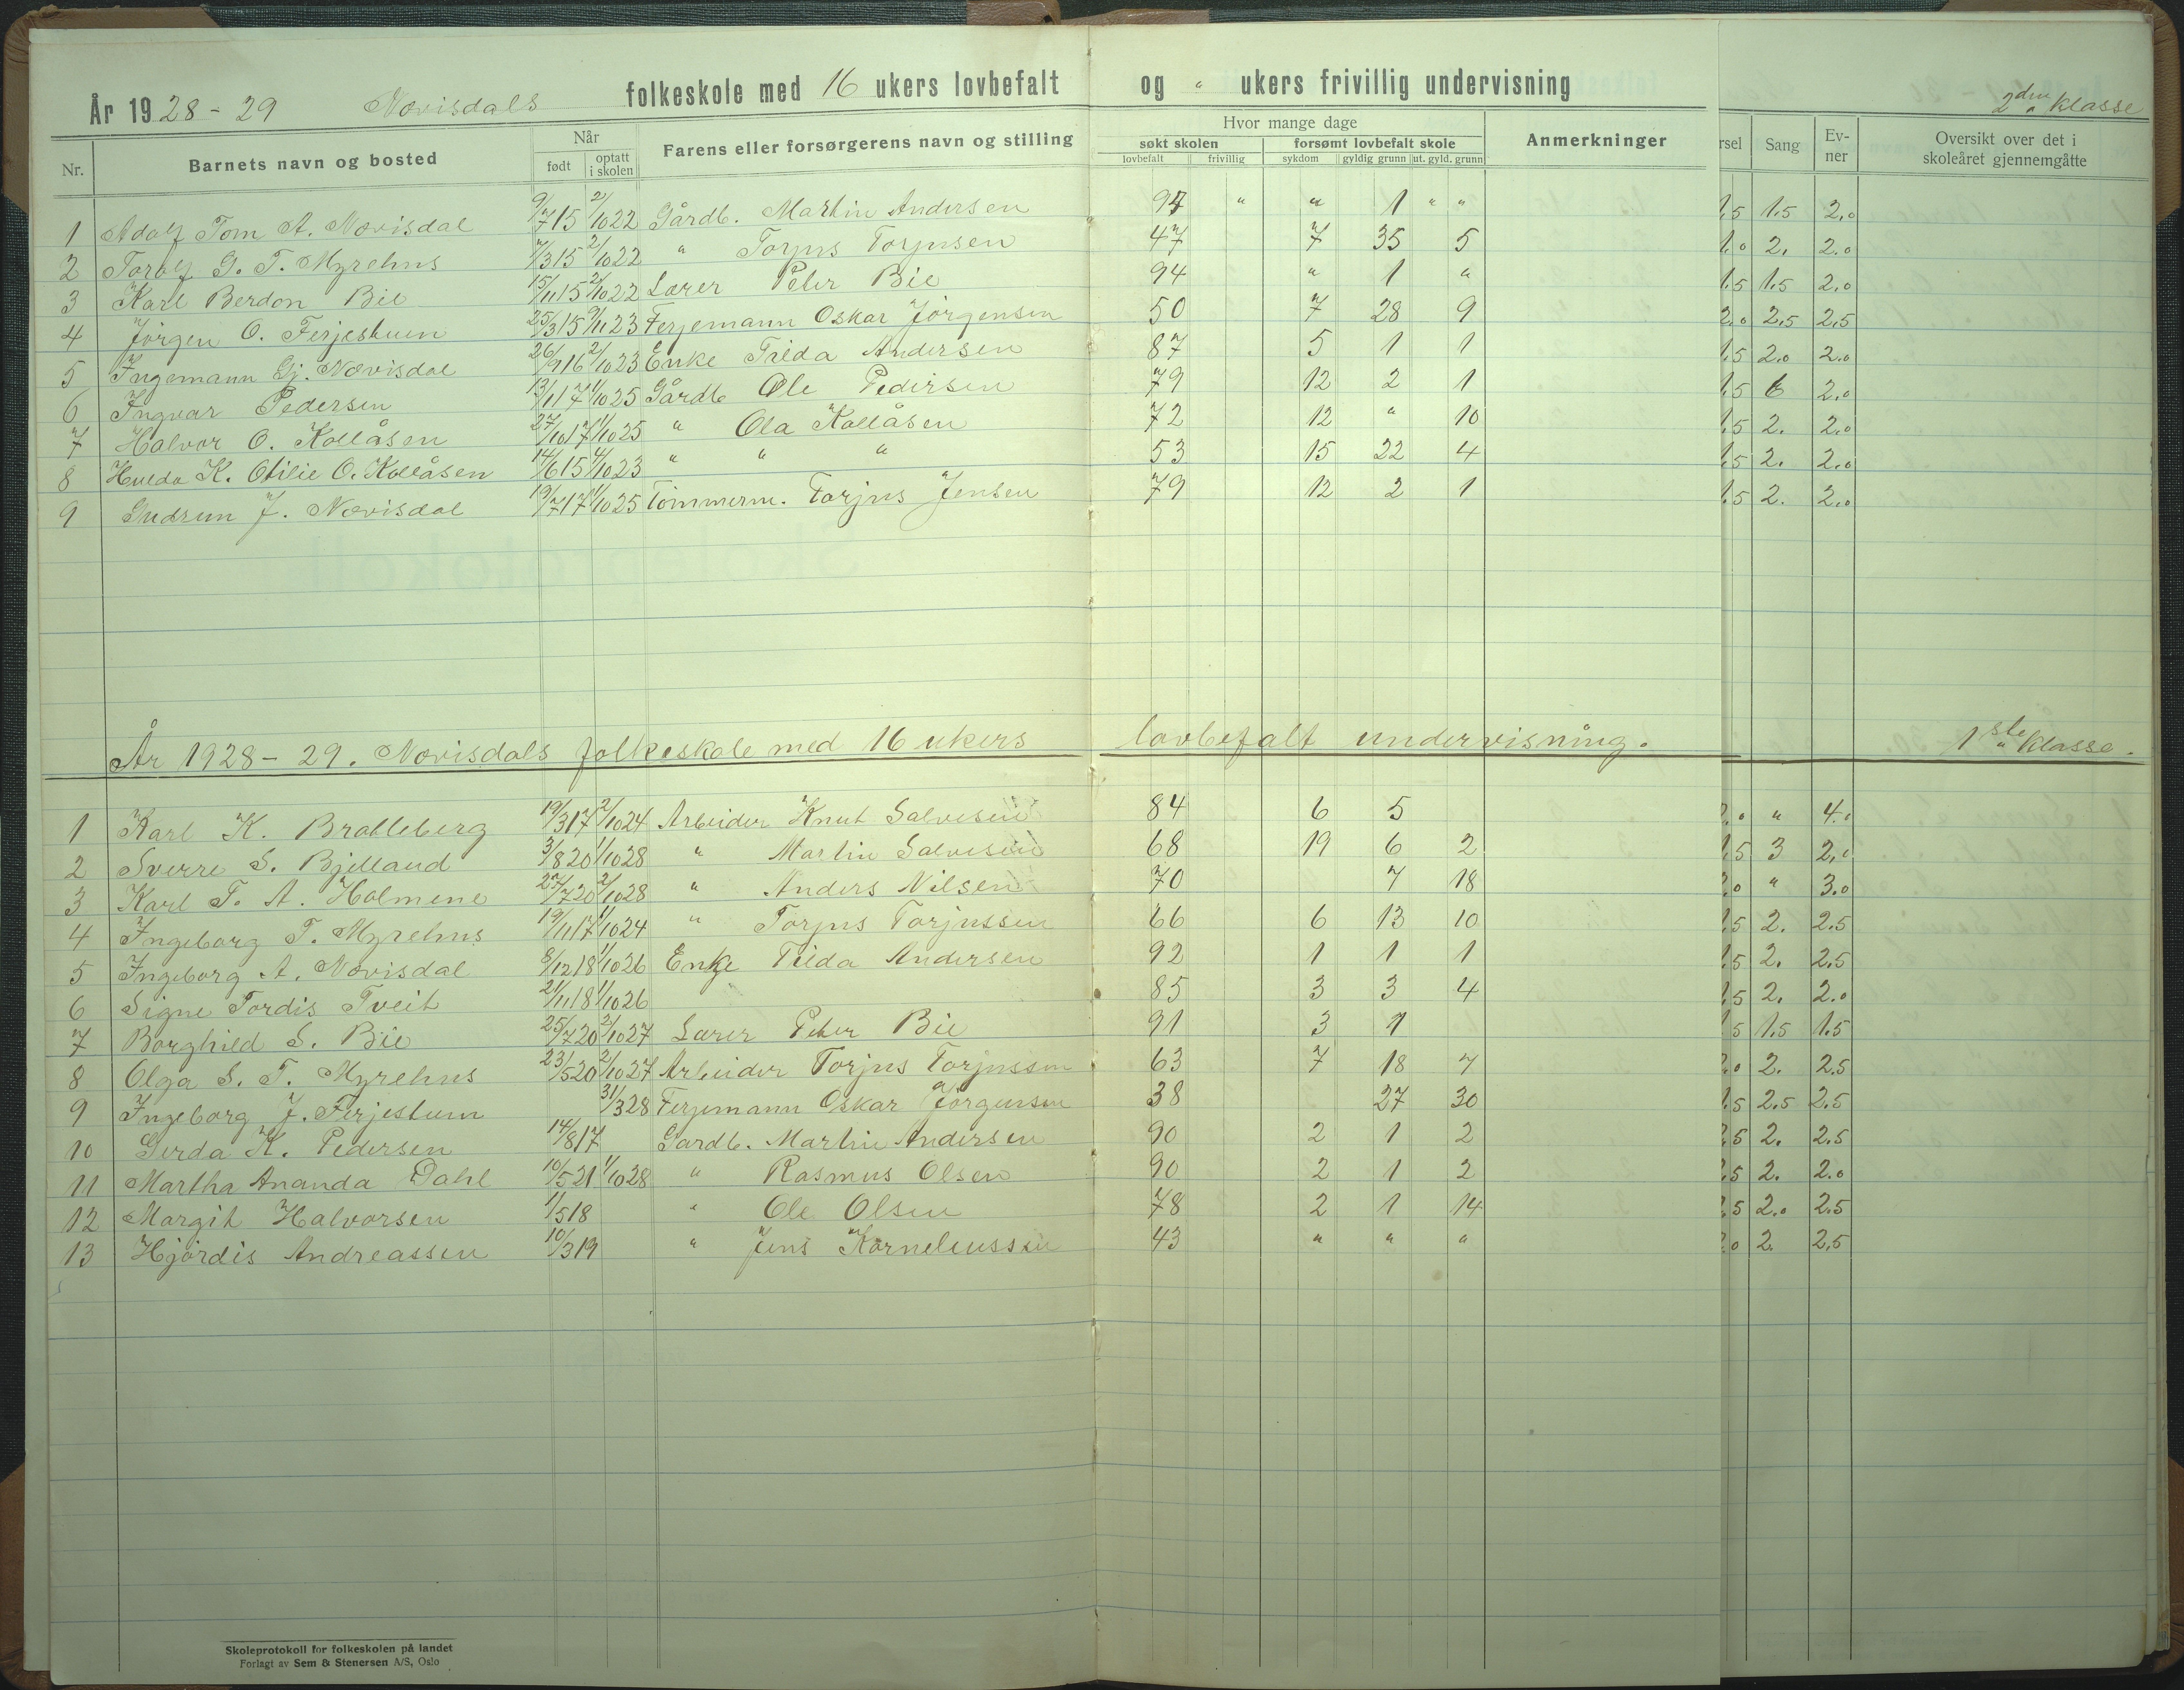 År 1928-29 Nævisdals folkeskole med 16 ukers lovbefalt og " ukers frivillig undervisning 2den Klasse
Nr. Barnets navn og bosted Når født optatt i skolen Farens eller forsørgerens navn og stilling Hvor mange dage søkt skolen lovbefalt frivillig forsømt lovbefalt skole sykdom gyldig grunn ut. gyld. grunn Anmerkninger rsel Sang Evner Oversikt over det i skoleåret gjennemgåtte
1 Adolf Tom A. Nævisdal 9/7 15 2/10 22 Gårdb. Martin Andersen 94 " " 1 " " 1.5 1.5 2.0
2 Torolf G. T. Myrehus 7/3 15 2/10 22 " Torjus Torjusen 47 7 35 5 1.0 2. 2.0
3 Karl Berdon Bie 15/11 15 2/10 22 Lærer Peter Bie 94 " 1 " 1.5 1.5 2.0
4 Jörgen O. Ferjestuen 25/3 15 9/11 23 Ferjemann Oskar Jörgensen 50 7 28 9 2.0 2.5 2.5
5 Ingemann Gj. Nævisdal 26/9 16 2/10 23 Enke Tilda Andersen 87 5 1 1 1.5 2.0 2.0
6 Ingvar Pedersen 13/11 17 1/10 25 Gårdb Ole Pedersen 79 12 2 1 1.5 6 2.0
7 Halvor O. Kollåsen 27/10 17 1/10 25 " Ola Kollåsen 72 12 " 10 1.5 2. 2.0
8 Hulda K. Otilie O. Kollåsen 14/6 15 4/10 23 " " " 53 15 22 4 1.5 2. 2.0
9 Gudrun J. Nævisdal 19/7 17 1/10 25 Tömmerm. Torjus Jensen 79 12 2 1 1.5 2. 2.0
År 1928-29. Nævisdals folkeskole med 16 ukers lovbefalt undervisning. 1ste Klasse.
1 Karl K. Bratteberg 19/3 17 2/10 24 Arbeider Knut Salvesen 84 6 5 2.0 " 4.0
2 Sverre S. Bjelland 3/8 20 1/10 28 " Martin Salvesen 68 19 6 2 1.5 3 2.0
3 Karl T. A. Holmene 27/7 20 2/10 28 " Anders Nilsen 70 7 18 2.0 " 3.0
4 Ingeborg T. Myrehus 19/11 17 1/10 24 " Torjus Torjussen 66 6 13 10 1.5 2. 2.5
5 Ingeborg A. Nævisdal 8/12 18 1/10 26 Enke Tilda Andersen 92 1 1 1 1.5 2. 2.5
6 Signe Tordis Tveit 21/11 18 1/10 26 85 3 3 4 1.5 2. 2.0
7 Borghild S. Bie 25/7 20 2/10 27 Lærer Peter Bie 91 3 1 1.5 1.5 1.5
8 Olga S. T. Myrehus 23/5 20 2/10 27 Arbeider Torjus Torjussen 63 7 18 7 2.0 2. 2.5
9 Ingeborg J. Ferjestuen 31/3 28 Ferjemann Oskar Jörgensen 38 27 30 1.5 2.5 2.5
10 Gerda K. Pedersen 14/8 17 Gardb. Martin Andersen 90 2 1 2 2.5 2. 2.5
11 Martha Ananda Dahl 10/5 21 1/10 28 " Rasmus Olsen 90 2 1 2 2.5 2. 2.0
12 Margit Halvorsen 1/5 18 " Ole Olsen 78 2 1 14 2.5 2.0 2.5
13 Hjördis Andreassen 10/3 19 " Jens Korneliussen 43 " " " 2.0 2. 2.5
Skoleprotokoll for folkeskolen på landet
Forlagt av Sem & Stenersen A/S, Oslo